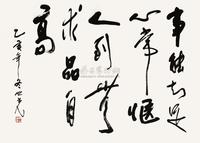 事能知足
心常惬
人到无
求品自
高
乙亥年冬